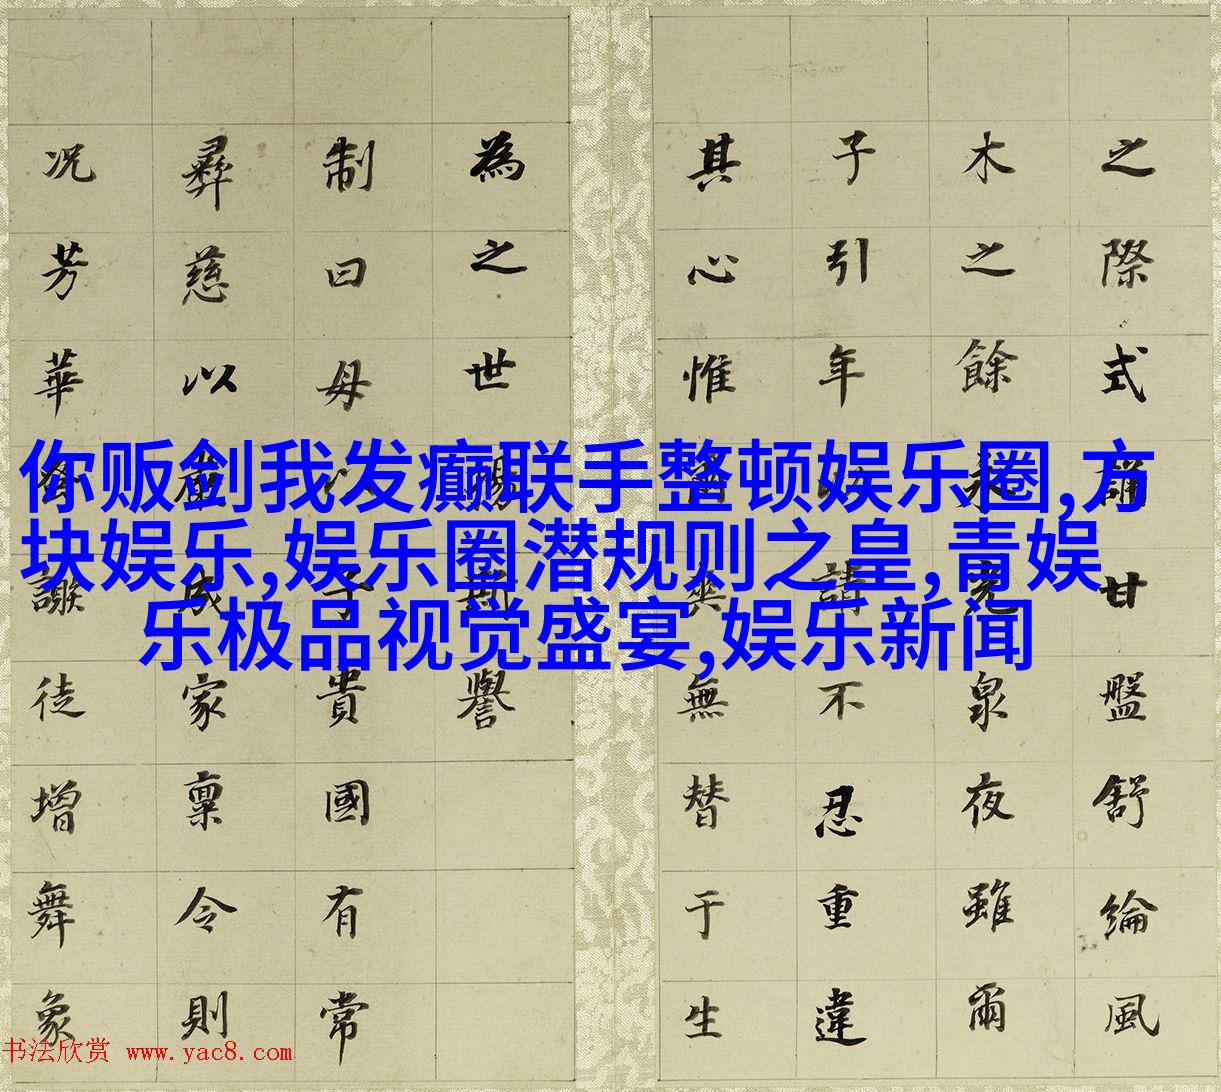 之際式甘盤舒綸風
木之餘永夜雖爾
子引年以請不忍重違
其心惟爽無替于生
為之世錫斯譽
制曰母以子貴國有常
彝慈以嚴成家稟令則
況芳華謝徒增舞象
你贩剑我发癫联手整顿娱乐圈,方
块娱乐,娱乐圈潜规则之皇,青娱
乐极品视觉盛宴,娱乐新闻
书法欣赏 www.yac8.com